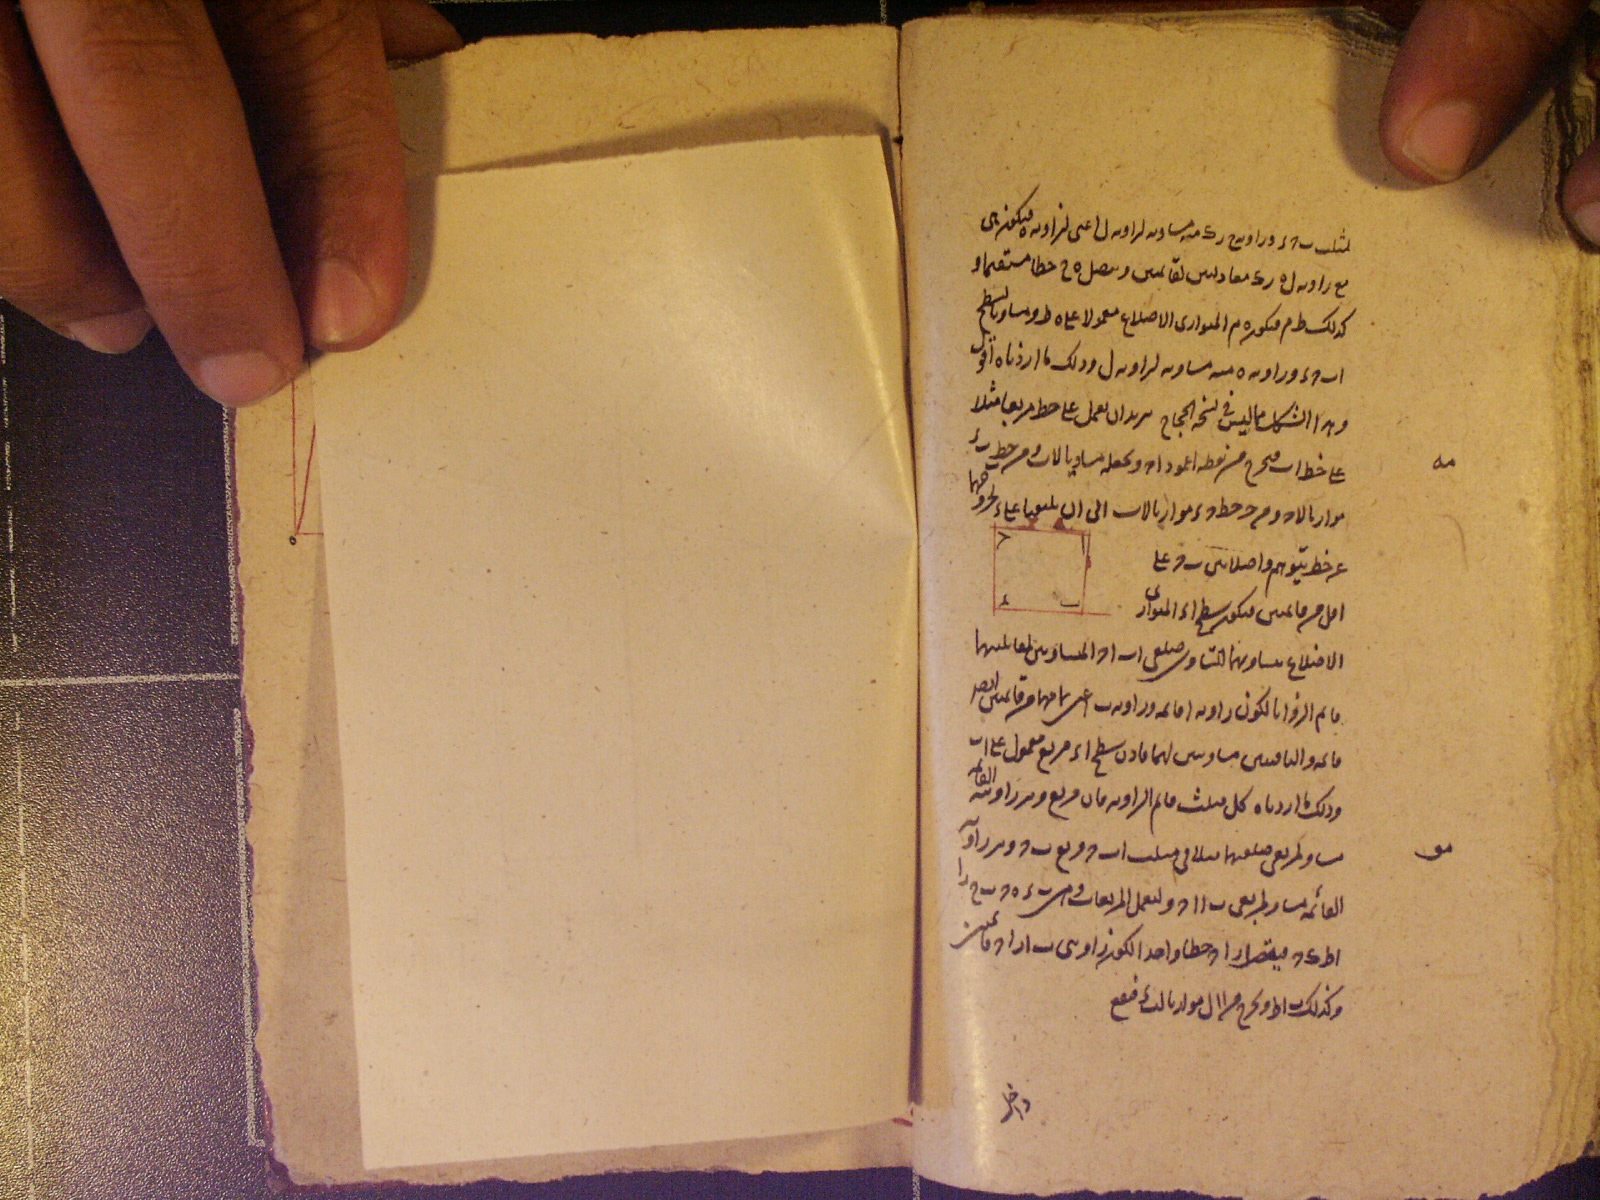 لمثلث ب ح ء وزاوية ح ر ك منه مساوية لزاوية ل اعنى لزاوية ه فيكون هى
مع زاوية ل ه ر ك معادلتين لقائمتين ويتصل ه ح خطا مستقيما و
كذلك ط م فيكون ه م المتوازى الاضلاع معمولا على ه ط ومساويا لسطح
اب ح ء وزاوية ه منه مساوية لزاوية ل وذلك ما اردناه اقول
وهذا الشكل مما ليس فى نسخة الحجاج نريد ان نعمل على خط مربعا مثلا
مه
على خط اب فنخرج من نقطة ا عمود ا ح ونجعله مساويا لاب ومن خط ب ء
موازيا لاح ومن ح خط ح ء موازيا لاب الى ان يلتقيا على ء لخروجهما
عن خط يتوهم واصلا بين ب ح على
اقل من قائمتين فيكون سطح ا ء المتوازى
الاضلاع متساويها لتساوى ضلعى اب ا ح المتساويين لمقابليهما
قائم الزوايا لكون زاوية ا قائمة وزاوية ب تمامها من قائمتين ايضا
قائمة والباقيتين مساويتين لهما فاذن سطح ا ء مربع معمول على اب
وذلك ما اردناه كل مثلث قائم الزاوية فان مربع وتر زاويته القائمة
مو
مساو لمربعى ضلعيها مثلا فى مثلث اب ح مربع ب ح وتر زاوية ا
القائمة مساو لمربعى ب ا ا ح ولنعمل المربعات وهى ب ء ه ح ب ح ر ا
ا ط ك ح فيتصل ا ر ا ح خطا واحدا لكون زاويتى ب ا ر ا ح قائمتين
وكذلك ب ا ط ونخرج من ا ا ل موازيا لب ء فيقع
داخل